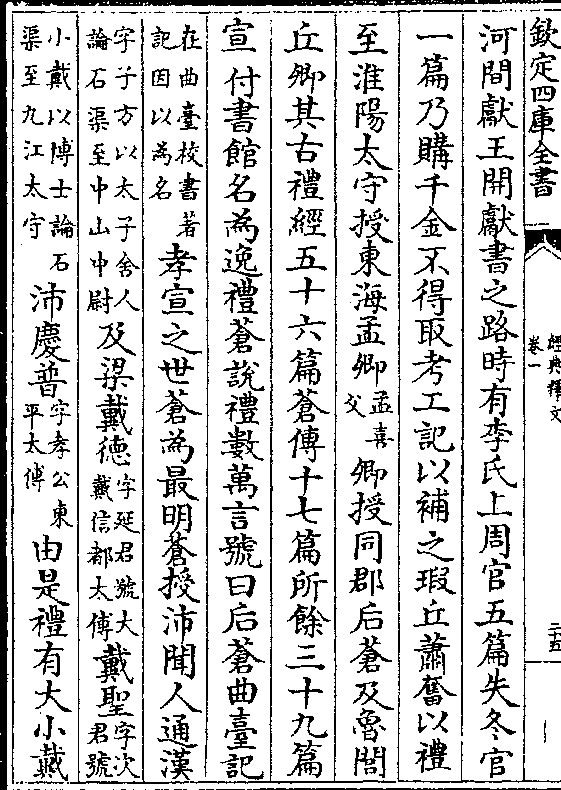 欽定四庫全書
經典釋文
卷一
二十五
河間獻王開獻書之路時有李氏上周官五篇失冬官
一篇乃購千金不得取考工記以補之瑕丘蕭奮以禮
至淮陽太守授東海孟卿孟喜父卿授同郡后蒼及魯閭
丘卿其古禮經五十六篇蒼傳十七篇所餘三十九篇
宣付書館名為逸禮蒼說禮數萬言號曰后蒼曲臺記
在曲臺校書著記因以為名孝宣之世蒼為最明蒼授沛聞人通漢
字子方以太子舍人論石渠至中山中尉及梁戴德字延君號大戴信都太傅戴聖字次君號
小戴以博士論石渠至九江太守沛慶普字孝公東平太傅由是禮有大小戴